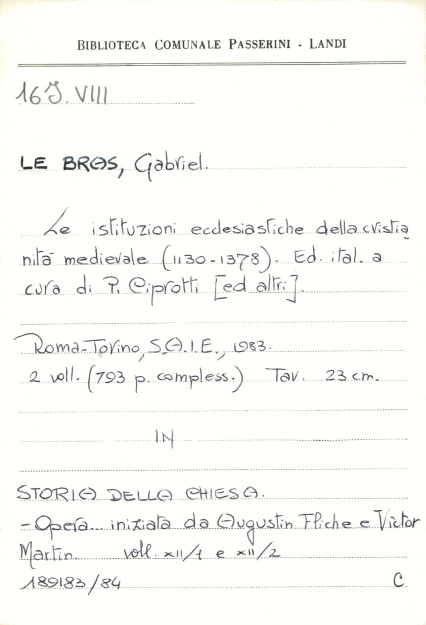 BIBLIOTECA COMUNALE PASSERINI - LANDI
16 J. VIII
LE BRAS, Gabriel.
Le istituzioni ecclesiastiche della cristia
nità medievale (1130-1378). Ed. ital. a
cura di P. Ciprotti [ed altri].
Roma-Torino, S.A.I.E., 1983.
2 voll. (793 p. compless.) Tav. 23 cm.
IN
STORIA DELLA CHIESA.
- Opera... iniziata da Augustin Fliche e Victor
Martin. voll. XII/1 e XII/2
189183/84 C